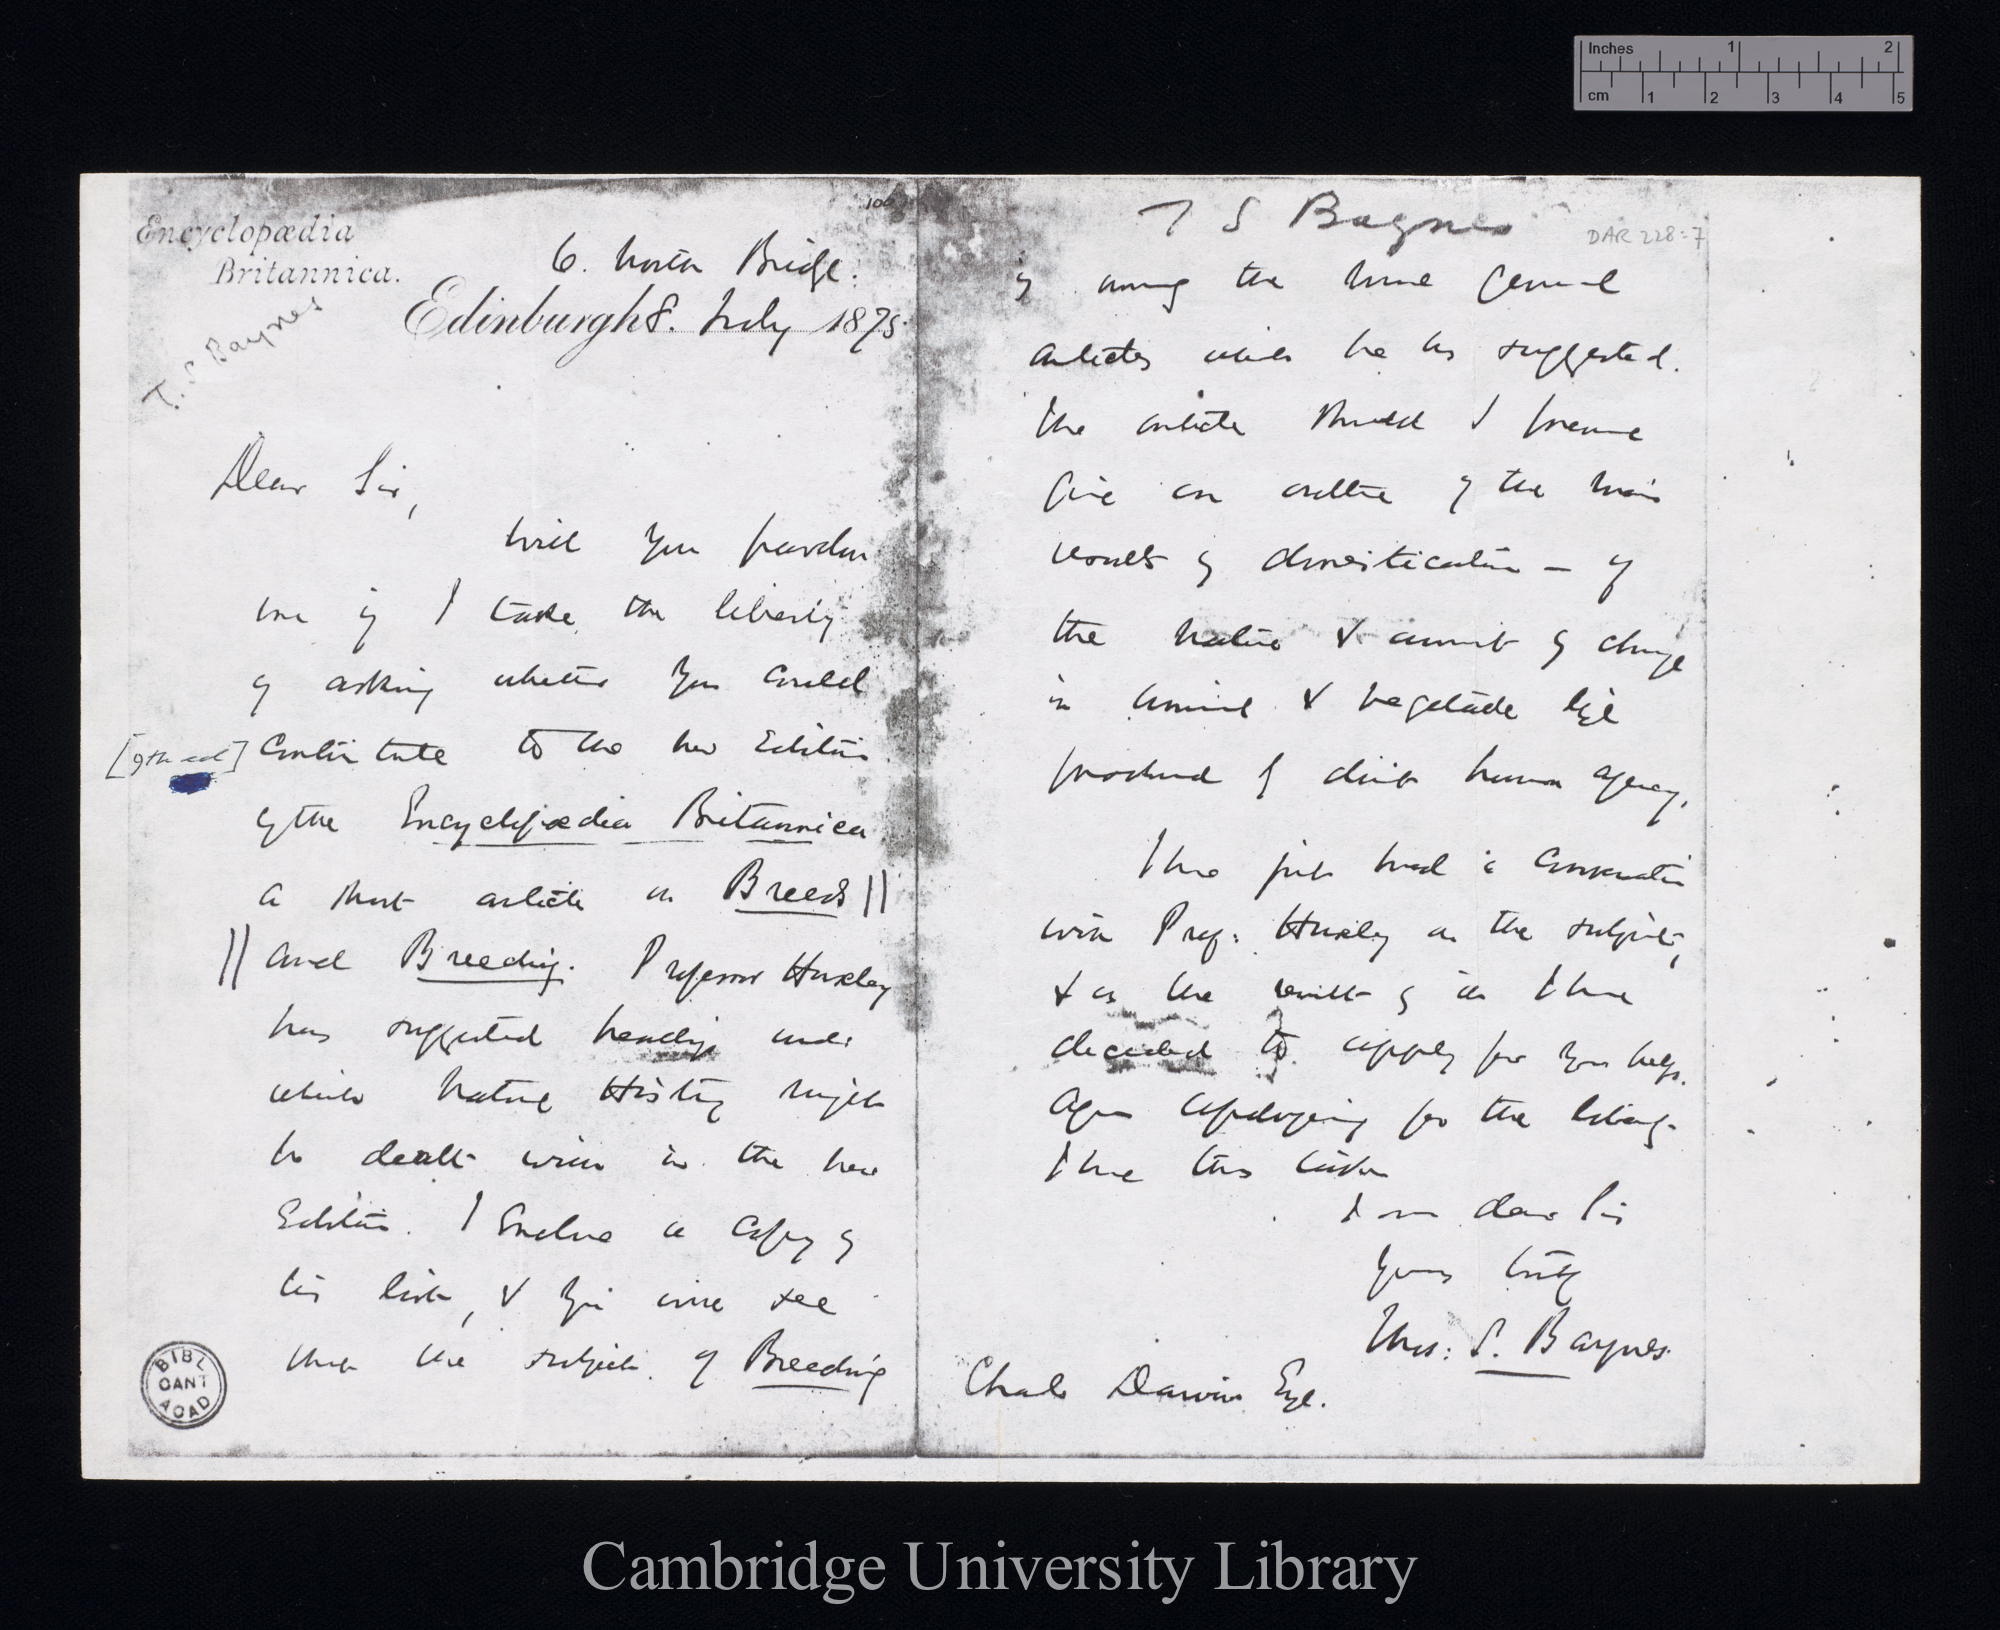 Inches 1 2
cm 1 2 3 4 5
Encyclopædia
Britannica.
T. S Baynes
100
6. North Bridge.
Edinburgh 8. July 1875.
Dear Sir,
Will you pardon
me if I take the liberty
of asking whether you could
[9th ed] contribute to the new Edition
of the Encyclopædia Britannica
a short article on Breeds ||
|| and Breeding. Professor Huxley
has suggested headings under
which Natural History might
be dealt with in the new
Edition. I enclose a copy of
his list, & you will see
that the subject of Breeding
BIBL
CANT
ACAD
T S Baynes
DAR 228:7
is among the more general
articles which he has suggested.
The article should I presume
give an outline of the main
results of domestication – of
the nature & amount of change
in animal & vegetable life
produced by direct human agency.
I have just had a conversation
with Prof: Huxley on the subject,
& as the result of it I have
decided to apply for your help.
Again apologising for the liberty
I have thus taken
I am dear Sir
Yours truly
Thos: S. Baynes
Charles Darwin Esq.
Cambridge University Library